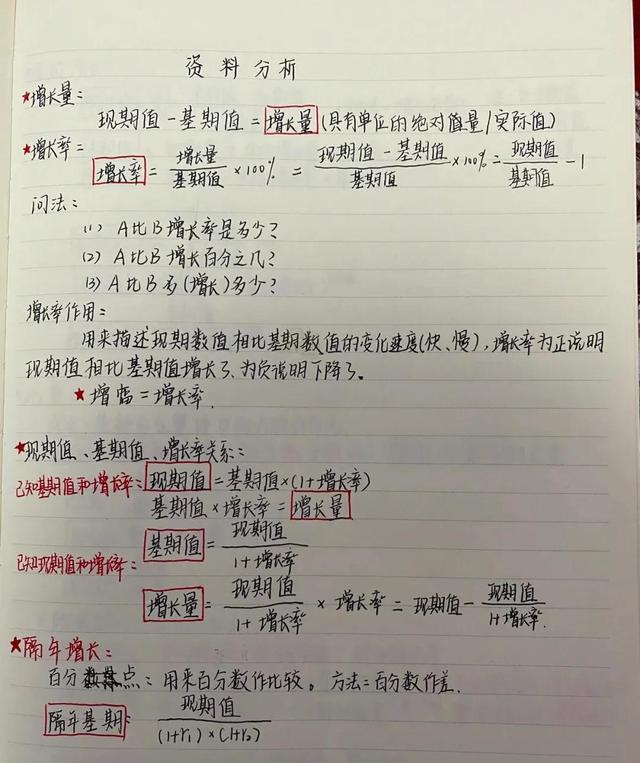 资料分析
★增长量:
现期值-基期值=增长量(具有单位的绝对值量/实际值)
★增长率=
增长率=增长量/基期值×100%=现期值-基期值/基期值×100%=现期值/基期值-1
问法:
(1) A比B增长率是多少?
(2) A比B增长百分之几?
(3) A比B多(增长)多少?
增长率作用:
用来描述现期数值相比基期数值的变化速度(快、慢),增长率为正说明
现期值相比基期值增长了、为负说明下降了。
★增幅=增长率.
★现期值、基期值、增长率关系:
已知基期值和增长率:现期值=基期值×(1+增长率)
基期值×增长率=增长量
基期值=现期值/1+增长率
已知现期值和增长率:
增长量=现期值/1+增长率×增长率=现期值-现期值/1+增长率.
★隔年增长:
百分点:用来百分数作比较。方法=百分数作差.
隔年基期:现期值/(1+r₁)×(1+r₂)